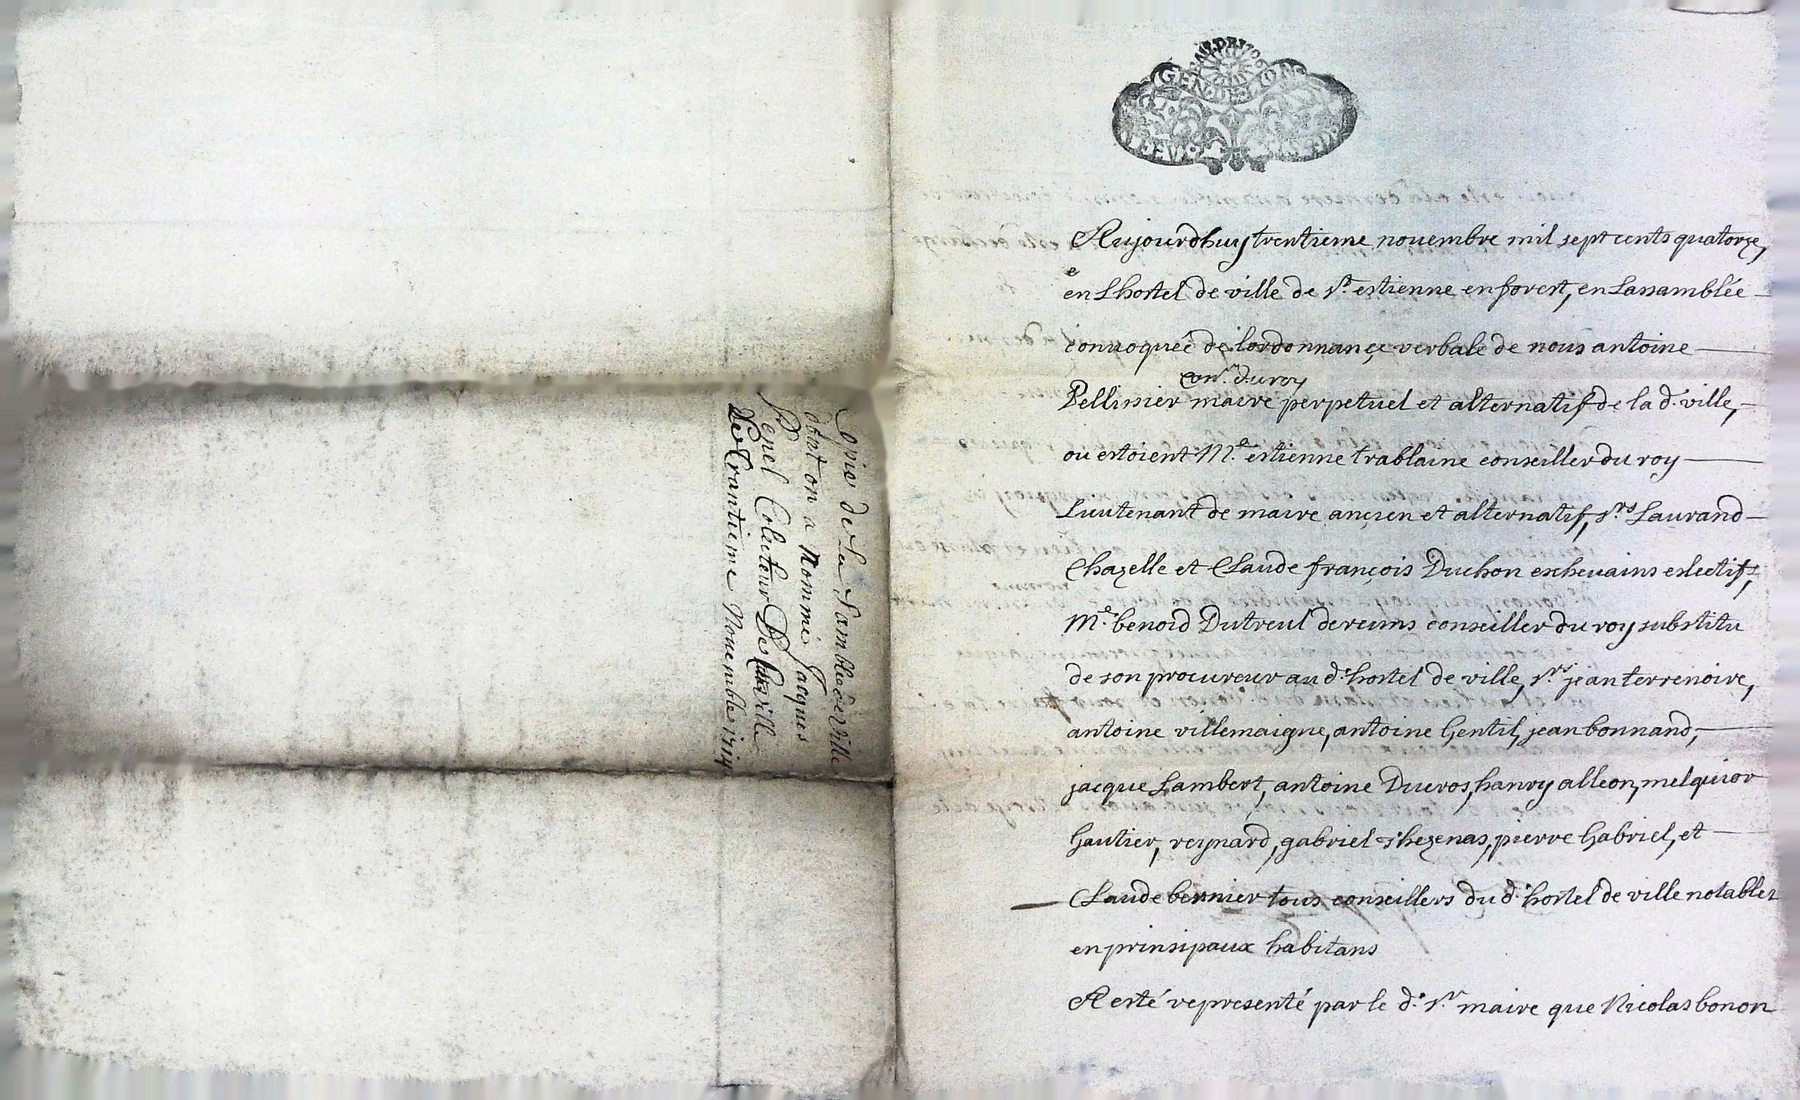 Copie de La Samblée de ville
obt on a nommé Jacques
Penel Colecteur Des ville
De Trantieme Nouembre 1714
Aujourdhuy trentieme novembre mil sept cents quatorze,
en Lhostel de ville de St. estienne en forest, en Lassamblée
convoqueé de lordonnançe verbale de nous antoine
conr. du roy
Pellissier maire perpetuel et alternatif de la d. ville,
ou estoient Me. estienne trablaine conseiller du roy
Lieutenant de maire ançien et alternatif, srs Laurand
Chazelle et Claude françois Duchon eschevains eslectifs,
Me. benoid Dutreul dereims conseiller du roy substitu
de son procureur au d. hostel de ville, srs jean terrenoire,
antoine villemaigne, antoine Gentil, jean bonnard,
jacque Lambert, antoine Ducros, hanry alleon, melquior
Gautier, reynard, gabriel Thezenas, pierre Gabriel, et
Claude bernier tous conseillers du d. hostel de ville notables
en prinsipaux habitans
A esté representé par le d. sr. maire que Nicolas bonon